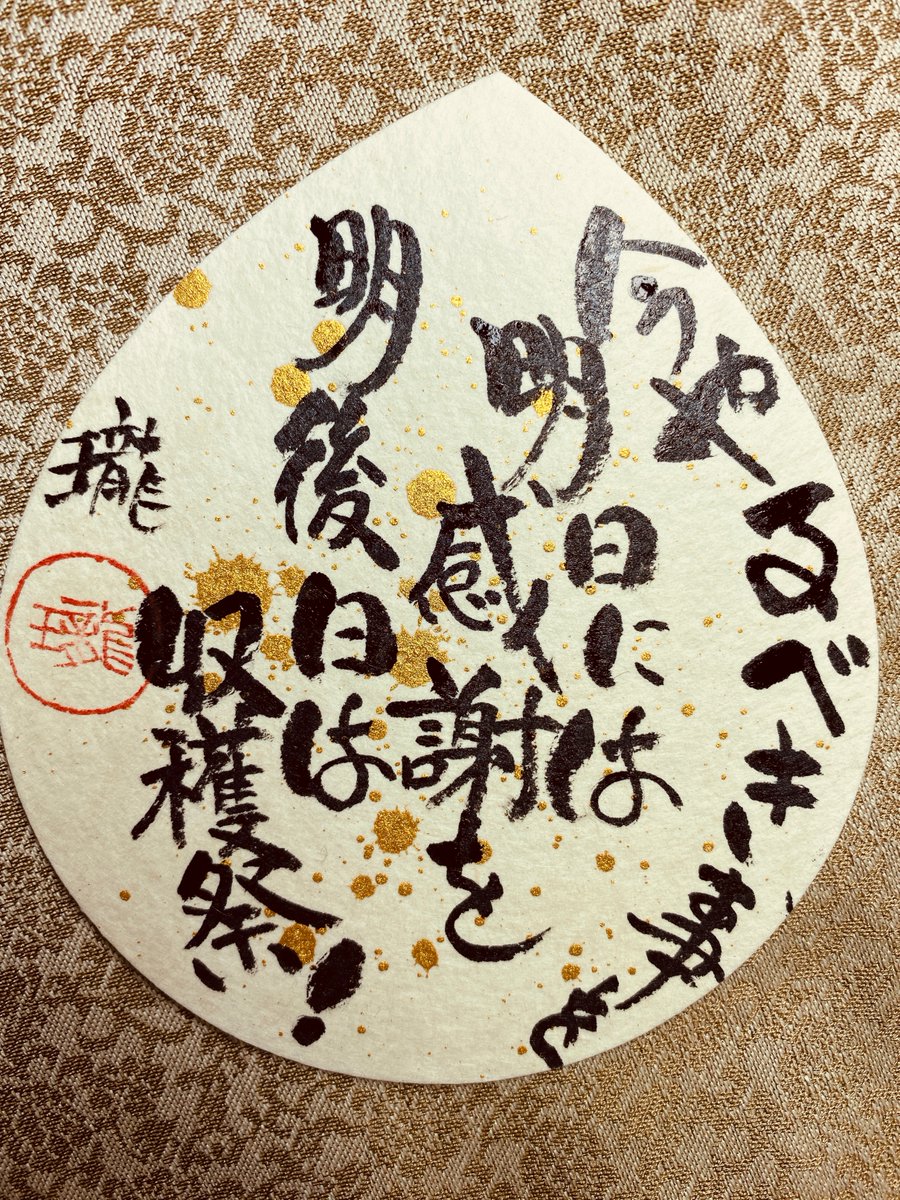 今やるべき事を
明日には
感謝を
明後日は
収穫祭!
瓏